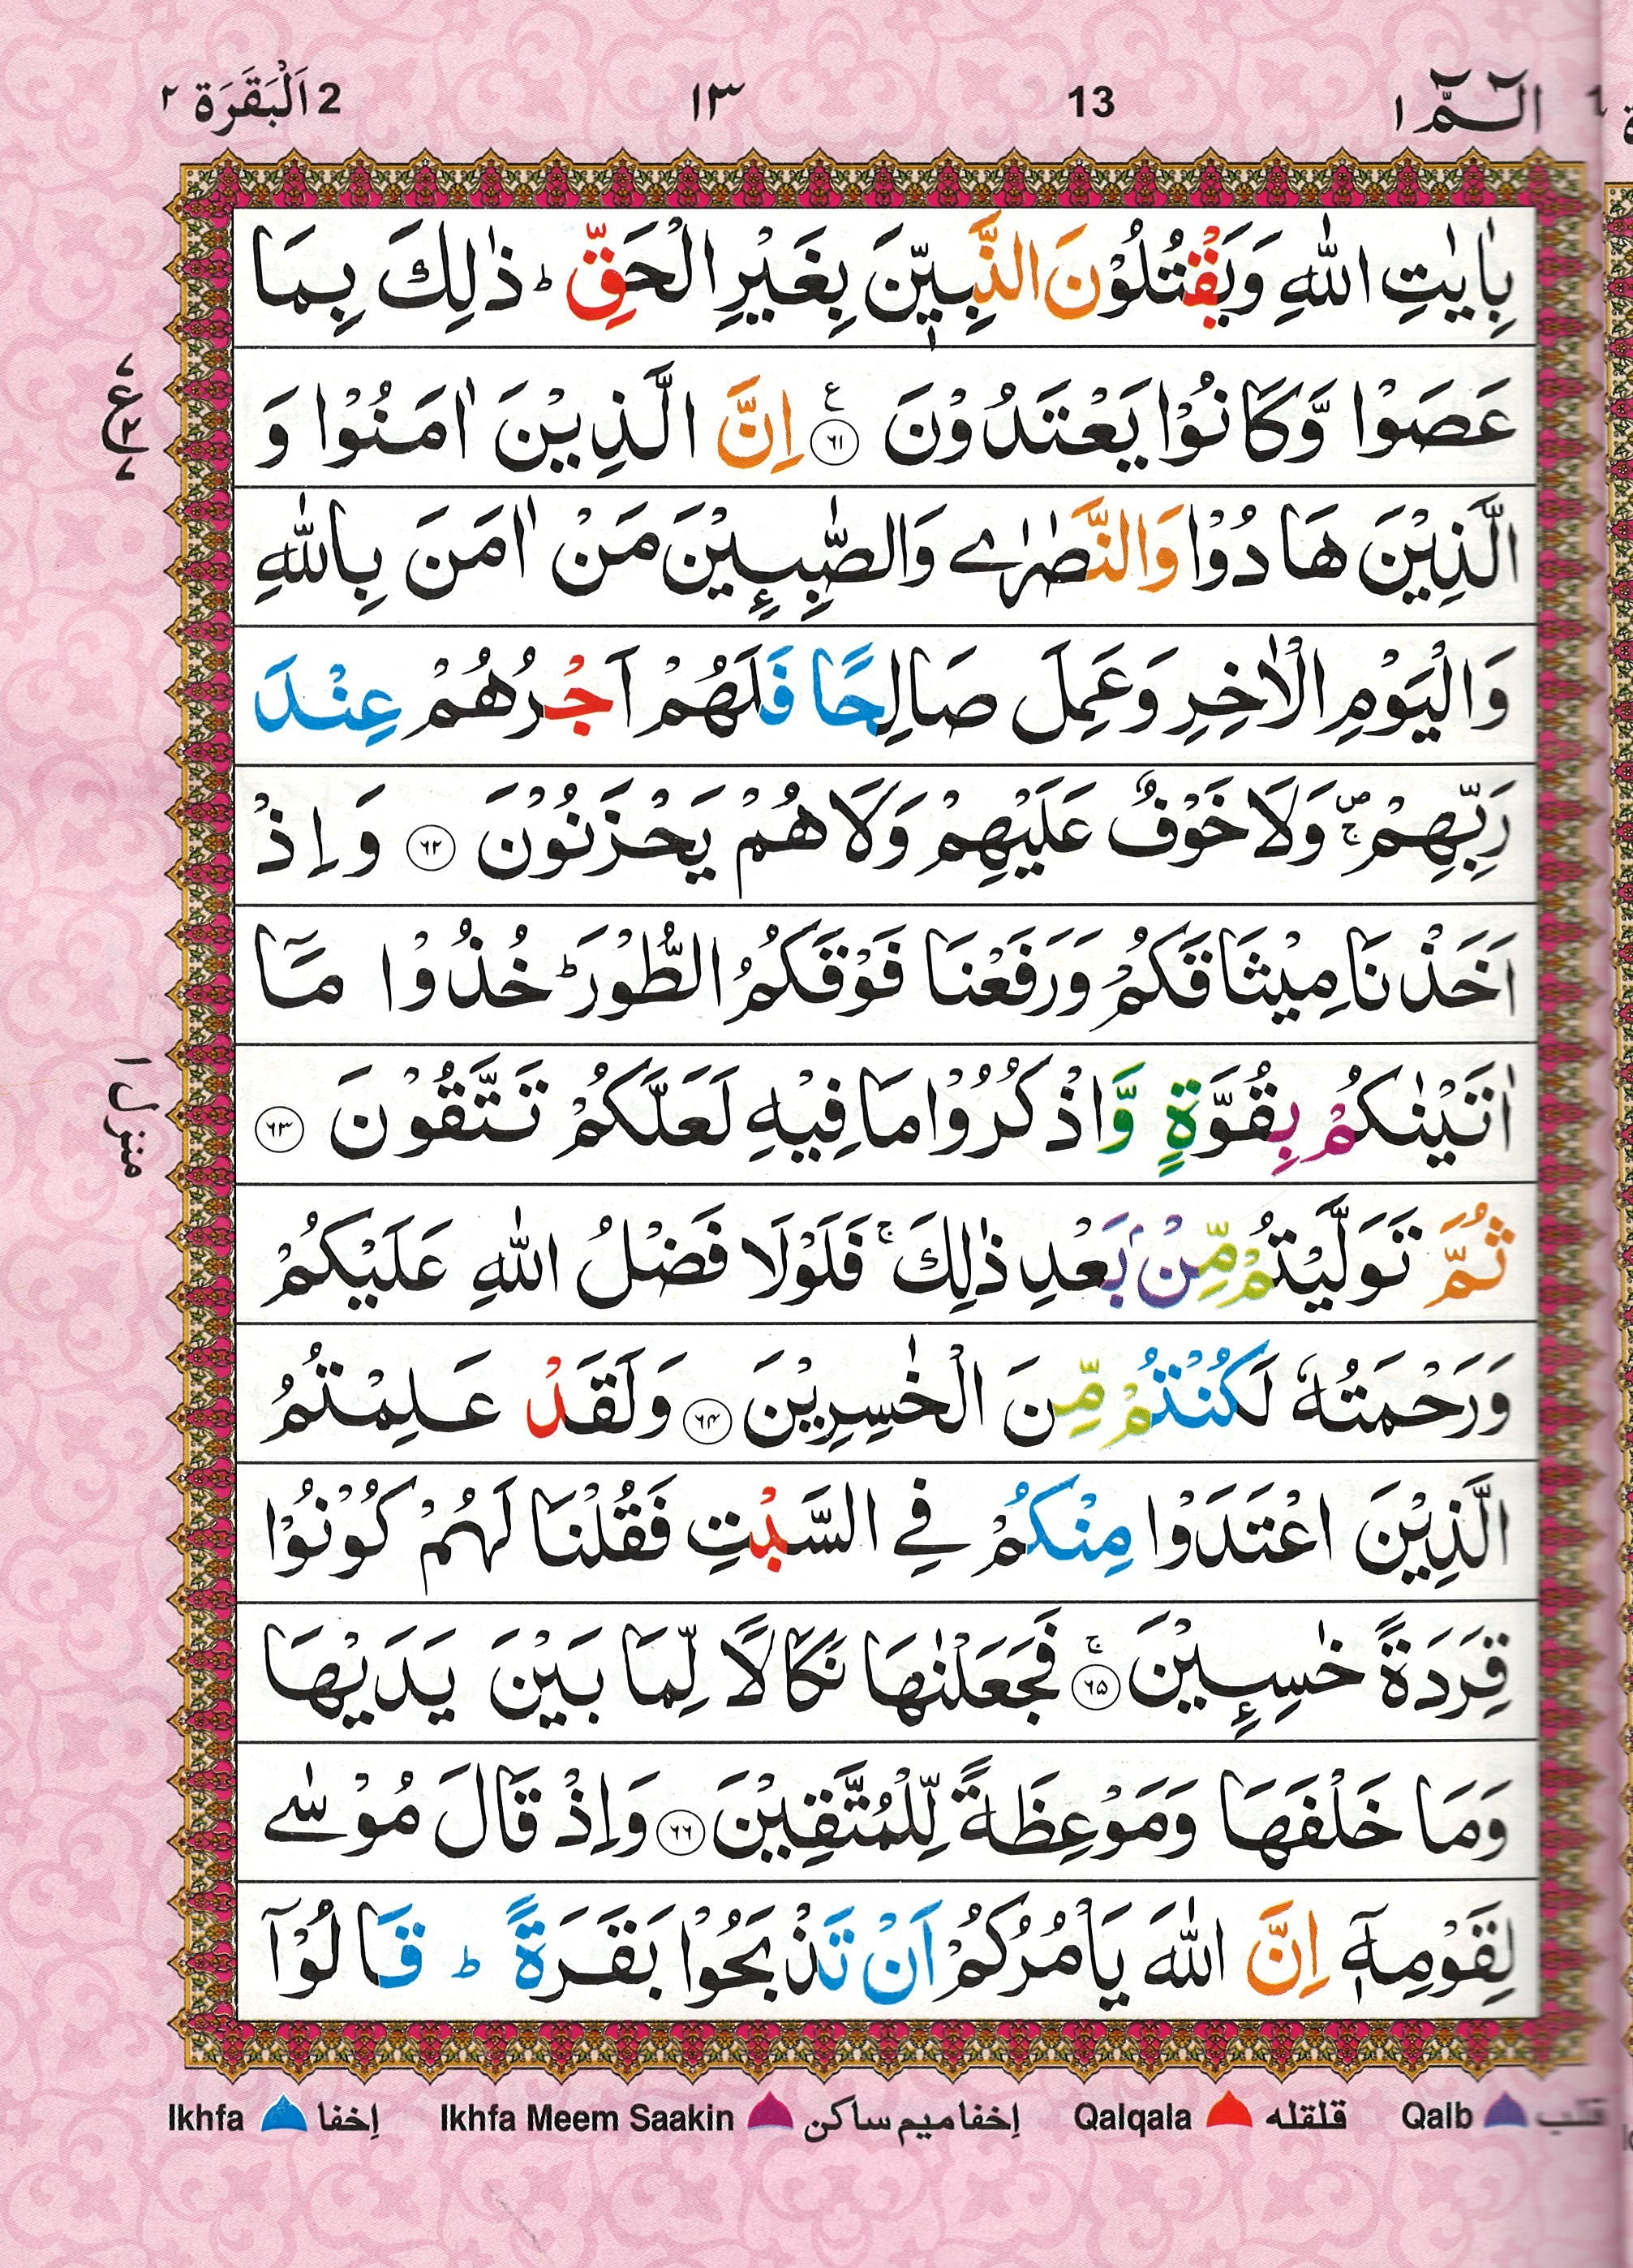 الٓـمّٓ ١
13
١٣
2 اَلْبَقَرَة ٢
بِاٰيٰتِ اللّٰهِ وَيَقْتُلُوْنَ النَّبِيّٖنَ بِغَيْرِ الْحَقِّ ؕ ذٰلِكَ بِمَا
عَصَوْا وَّكَانُوْا يَعْتَدُوْنَ ﴿٦١﴾ ع اِنَّ الَّذِيْنَ اٰمَنُوْا وَ
الَّذِيْنَ هَادُوْا وَالنَّصٰرٰى وَالصّٰبِــِٕيْنَ مَنْ اٰمَنَ بِاللّٰهِ
وَالْيَوْمِ الْاٰخِرِ وَعَمِلَ صَالِحًا فَلَهُمْ اَجْرُهُمْ عِنْدَ
رَبِّهِمْ ۪ۚ وَلَا خَوْفٌ عَلَيْهِمْ وَلَا هُمْ يَحْزَنُوْنَ ﴿٦٢﴾ وَاِذْ
اَخَذْنَا مِيْثَاقَكُمْ وَرَفَعْنَا فَوْقَكُمُ الطُّوْرَ ؕ خُذُوْا مَآ
اٰتَيْنٰكُمْ بِقُوَّةٍ وَّاذْكُرُوْا مَا فِيْهِ لَعَلَّكُمْ تَتَّقُوْنَ ﴿٦٣﴾
ثُمَّ تَوَلَّيْتُمْ مِّنْۢ بَعْدِ ذٰلِكَ ۚ فَلَوْلَا فَضْلُ اللّٰهِ عَلَيْكُمْ
وَرَحْمَتُهٗ لَكُنْتُمْ مِّنَ الْخٰسِرِيْنَ ﴿٦٤﴾ وَلَقَدْ عَلِمْتُمُ
الَّذِيْنَ اعْتَدَوْا مِنْكُمْ فِي السَّبْتِ فَقُلْنَا لَهُمْ كُوْنُوْا
قِرَدَةً خٰسِــِٕيْنَ ۚ﴿٦٥﴾ فَجَعَلْنٰهَا نَكَالًا لِّمَا بَيْنَ يَدَيْهَا
وَمَا خَلْفَهَا وَمَوْعِظَةً لِّلْمُتَّقِيْنَ ﴿٦٦﴾ وَاِذْ قَالَ مُوْسٰى
لِقَوْمِهٖٓ اِنَّ اللّٰهَ يَاْمُرُكُمْ اَنْ تَذْبَحُوْا بَقَرَةً ؕ قَالُوْٓا
منزل ١
Ikhfa اِخفا Ikhfa Meem Saakin اِخفا میم ساکن Qalqala قلقله Qalb قلب